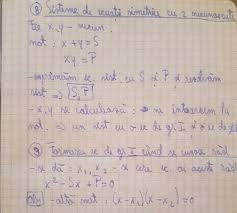 ⑧ Sisteme de ecuații simetrice cu 2 necunoscute
Fie x, y - necun.
not: x + y = S
xy = P
- exprimăm sist. cu S și P și rezolvăm
sist ⇒ (S, P)
- x, y se calculează: ne întoarcem la
not. ⇒ un sist cu o ec de gr I și o ec de gr
⑨ Formarea ec de gr II când se cunosc răd
- se dă: x₁, x₂ - x ce au aceste răd
x² - Sx + P = 0
Obs - altă met: (x - x₁)(x - x₂) = 0